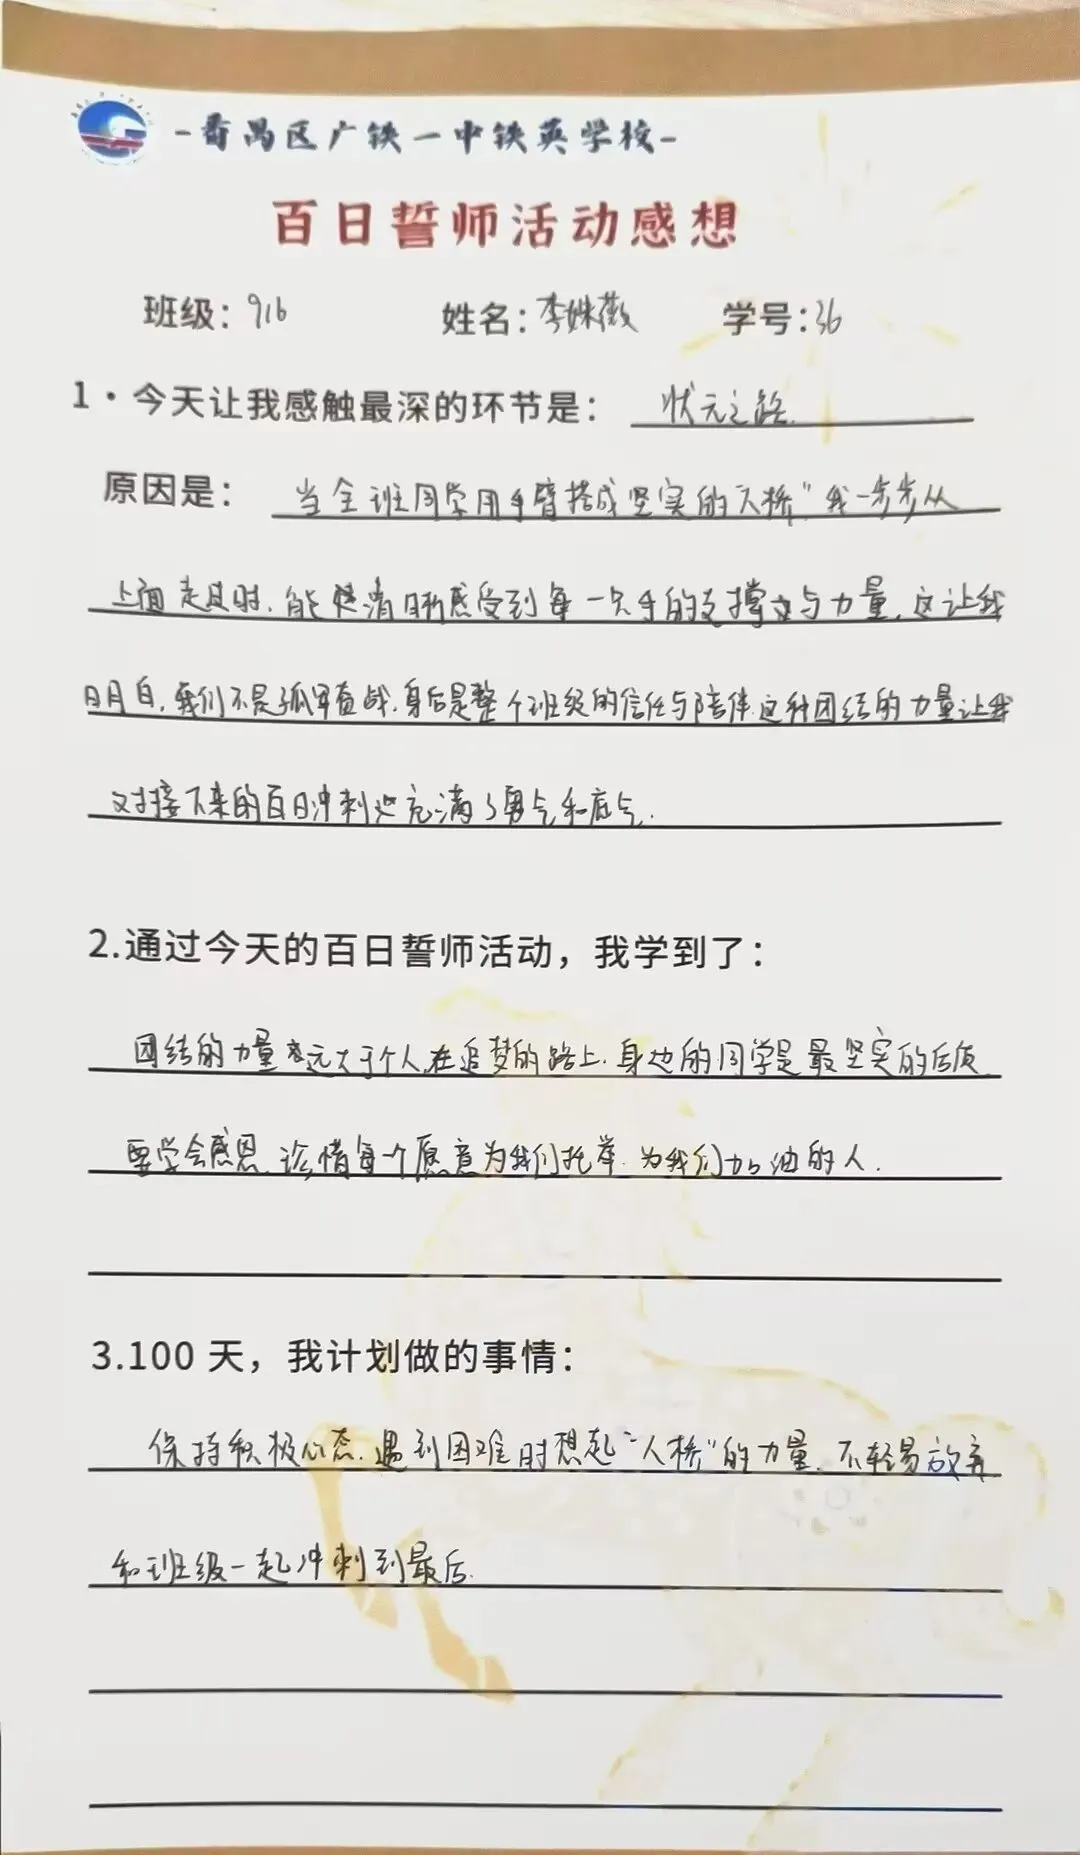 -番禺区广铁一中铁英学校-
百日誓师活动感想
班级：916 姓名：李姝薇 学号：36
1·今天让我感触最深的环节是：状元之路.
原因是：当全班同学用手臂搭成坚实的"人桥"我一步步从
上面走过时，能清晰感受到每一只手的支撑与力量，这让我
明白，我们不是孤军奋战，身后是整个班级的信任与陪伴.这种团结的力量让我
对接下来的百日冲刺充满了勇气和底气.
2.通过今天的百日誓师活动，我学到了：
团结的力量远大于个人，在追梦的路上，身边的同学是最坚实的后盾
要学会感恩，珍惜每一个愿意为我们托举，为我们加油的人.
3.100 天，我计划做的事情：
保持积极心态，遇到困难时想起"人桥"的力量，不轻易放弃
和班级一起冲刺到最后.